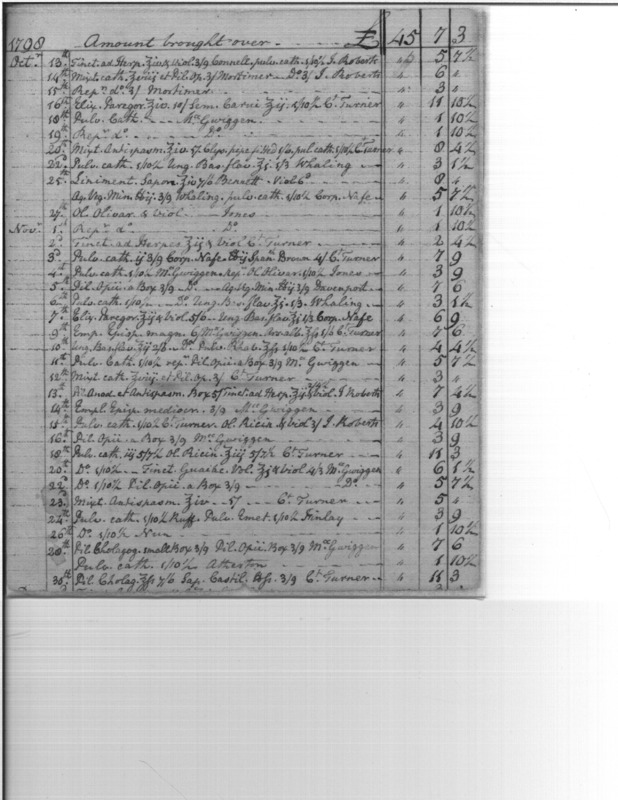 1798 Amount brought over - - - £ 45 7 3
Octr. 13th Tinct. ad Herp. Ziv & Viol. 3/9 Connell, pulv. cath. 1/10½ J. Roberts 5 7½
14th Mixt. cath. Zviij et Pil. Op. 3/ Mortimer - Do 3/ J. Roberts 6 "
15th Repr. do. 3/ Mortimer 3 "
16th Elix. Paregor. Ziv. 10/ Sem. Carui Zij. 1/10½ Ct. Turner 11 10½
18th Pulv. Cath. - McGwiggen 1 10½
19th Repr. do. - - - Do. 1 10½
20th Mixt. Antispasm. Ziv 5/ pulv. cath. 1/10½ Ct. Turner 8 4½
22d. Pulv. cath. 1/10½ Ung. Bas. flav. Zi. 1/3 Whaling 3 1½
25th Liniment. Sapon. Ziv 7/6 Bennett - Viol 6d 8 "
Aq. Veg. Min. ℔ij. 3/9 Whaling, pulv. cath. 1/10½ Corp. Nafe 5 7½
27th Ol. Olivar. & viol - Jones 1 10½
Novr. 1st Repr. do. - Do. 1 10½
2d. Tinct. ad Herpes Zij & Viol Ct. Turner 2 4½
3d. Pulv. cath. ij 3/9 Corp. Nafe. 4/ Ct. Turner 7 9
4th Pulv. cath. 1/10½ McGwiggen Repr. Ol. Olivar. 1/10½ Jones 3 9
5th Pil. Opii. a Box 3/9 - Do. Aq. Veg. Min. ℔ij 3/9 Davenport 7 6
6th Pulv. cath. 1/10½ - Do. Ung. Bas. flav. Zi. 1/3. Whaling 3 1½
7th Elix. Paregor. Zij & viol. 5/6 Ung. Bas. flav. Zi 1/3 Corp. Nafe 6 9
9th Emp. Episp. magn. 6/ McGwiggen. 1/6 Ct. Turner 7 6
10th Ung. Bas. flav. Zij 2/6 - Do. Pulv. Rhab. 1/10½ Ct. Turner 4 4½
11th Pulv. Cath. 1/10½ repr. Pil. Opii. a Box 3/9 McGwiggen 5 7½
12th Mixt. cath. Zviij et Pil. Op. 3/ Ct. Turner 3 "
13th Pil. Anod. et Antispasm. Box 5/ Tinct. ad Herp. Zij & viol. J. Roberts 7 4½
14th Empl. Episp. mediocr. 3/9 McGwiggen 3 9
15th Pulv. cath. 1/10½ Ct. Turner. Ol. Ricin & viol 3/ J. Roberts 4 10½
16th Pil. Opii a Box 3/9 McGwiggen 3 9
18th Pulv. cath. iij 5/7½ Ol. Ricin. Ziij 5/7½ Ct. Turner 11 3
20th Do. 1/10½ - Tinct. Guaiac. Vol. Zj & viol 4/3 McGwiggen 6 1½
22d. Do. 1/10½ Pil. Opii. a Box 3/9 - Do. 5 7½
23d. Mixt. Antispasm. Ziv - 5/ - Ct. Turner 5 "
24th Pulv. cath. 1/10½ Ruff. Pulv. Emet. 1/10½ Finlay 3 9
26th Do. 1/10½ Nun 1 10½
28th Pil. Cholagog. small Box 3/9 Pil. Opii. Box 3/9 McGwiggen 7 6
Pulv. cath. 1/10½ Atheston 1 10½
30th Pil. Cholag. 7/6 Sap. Castil. 3/9 Ct. Turner 11 3